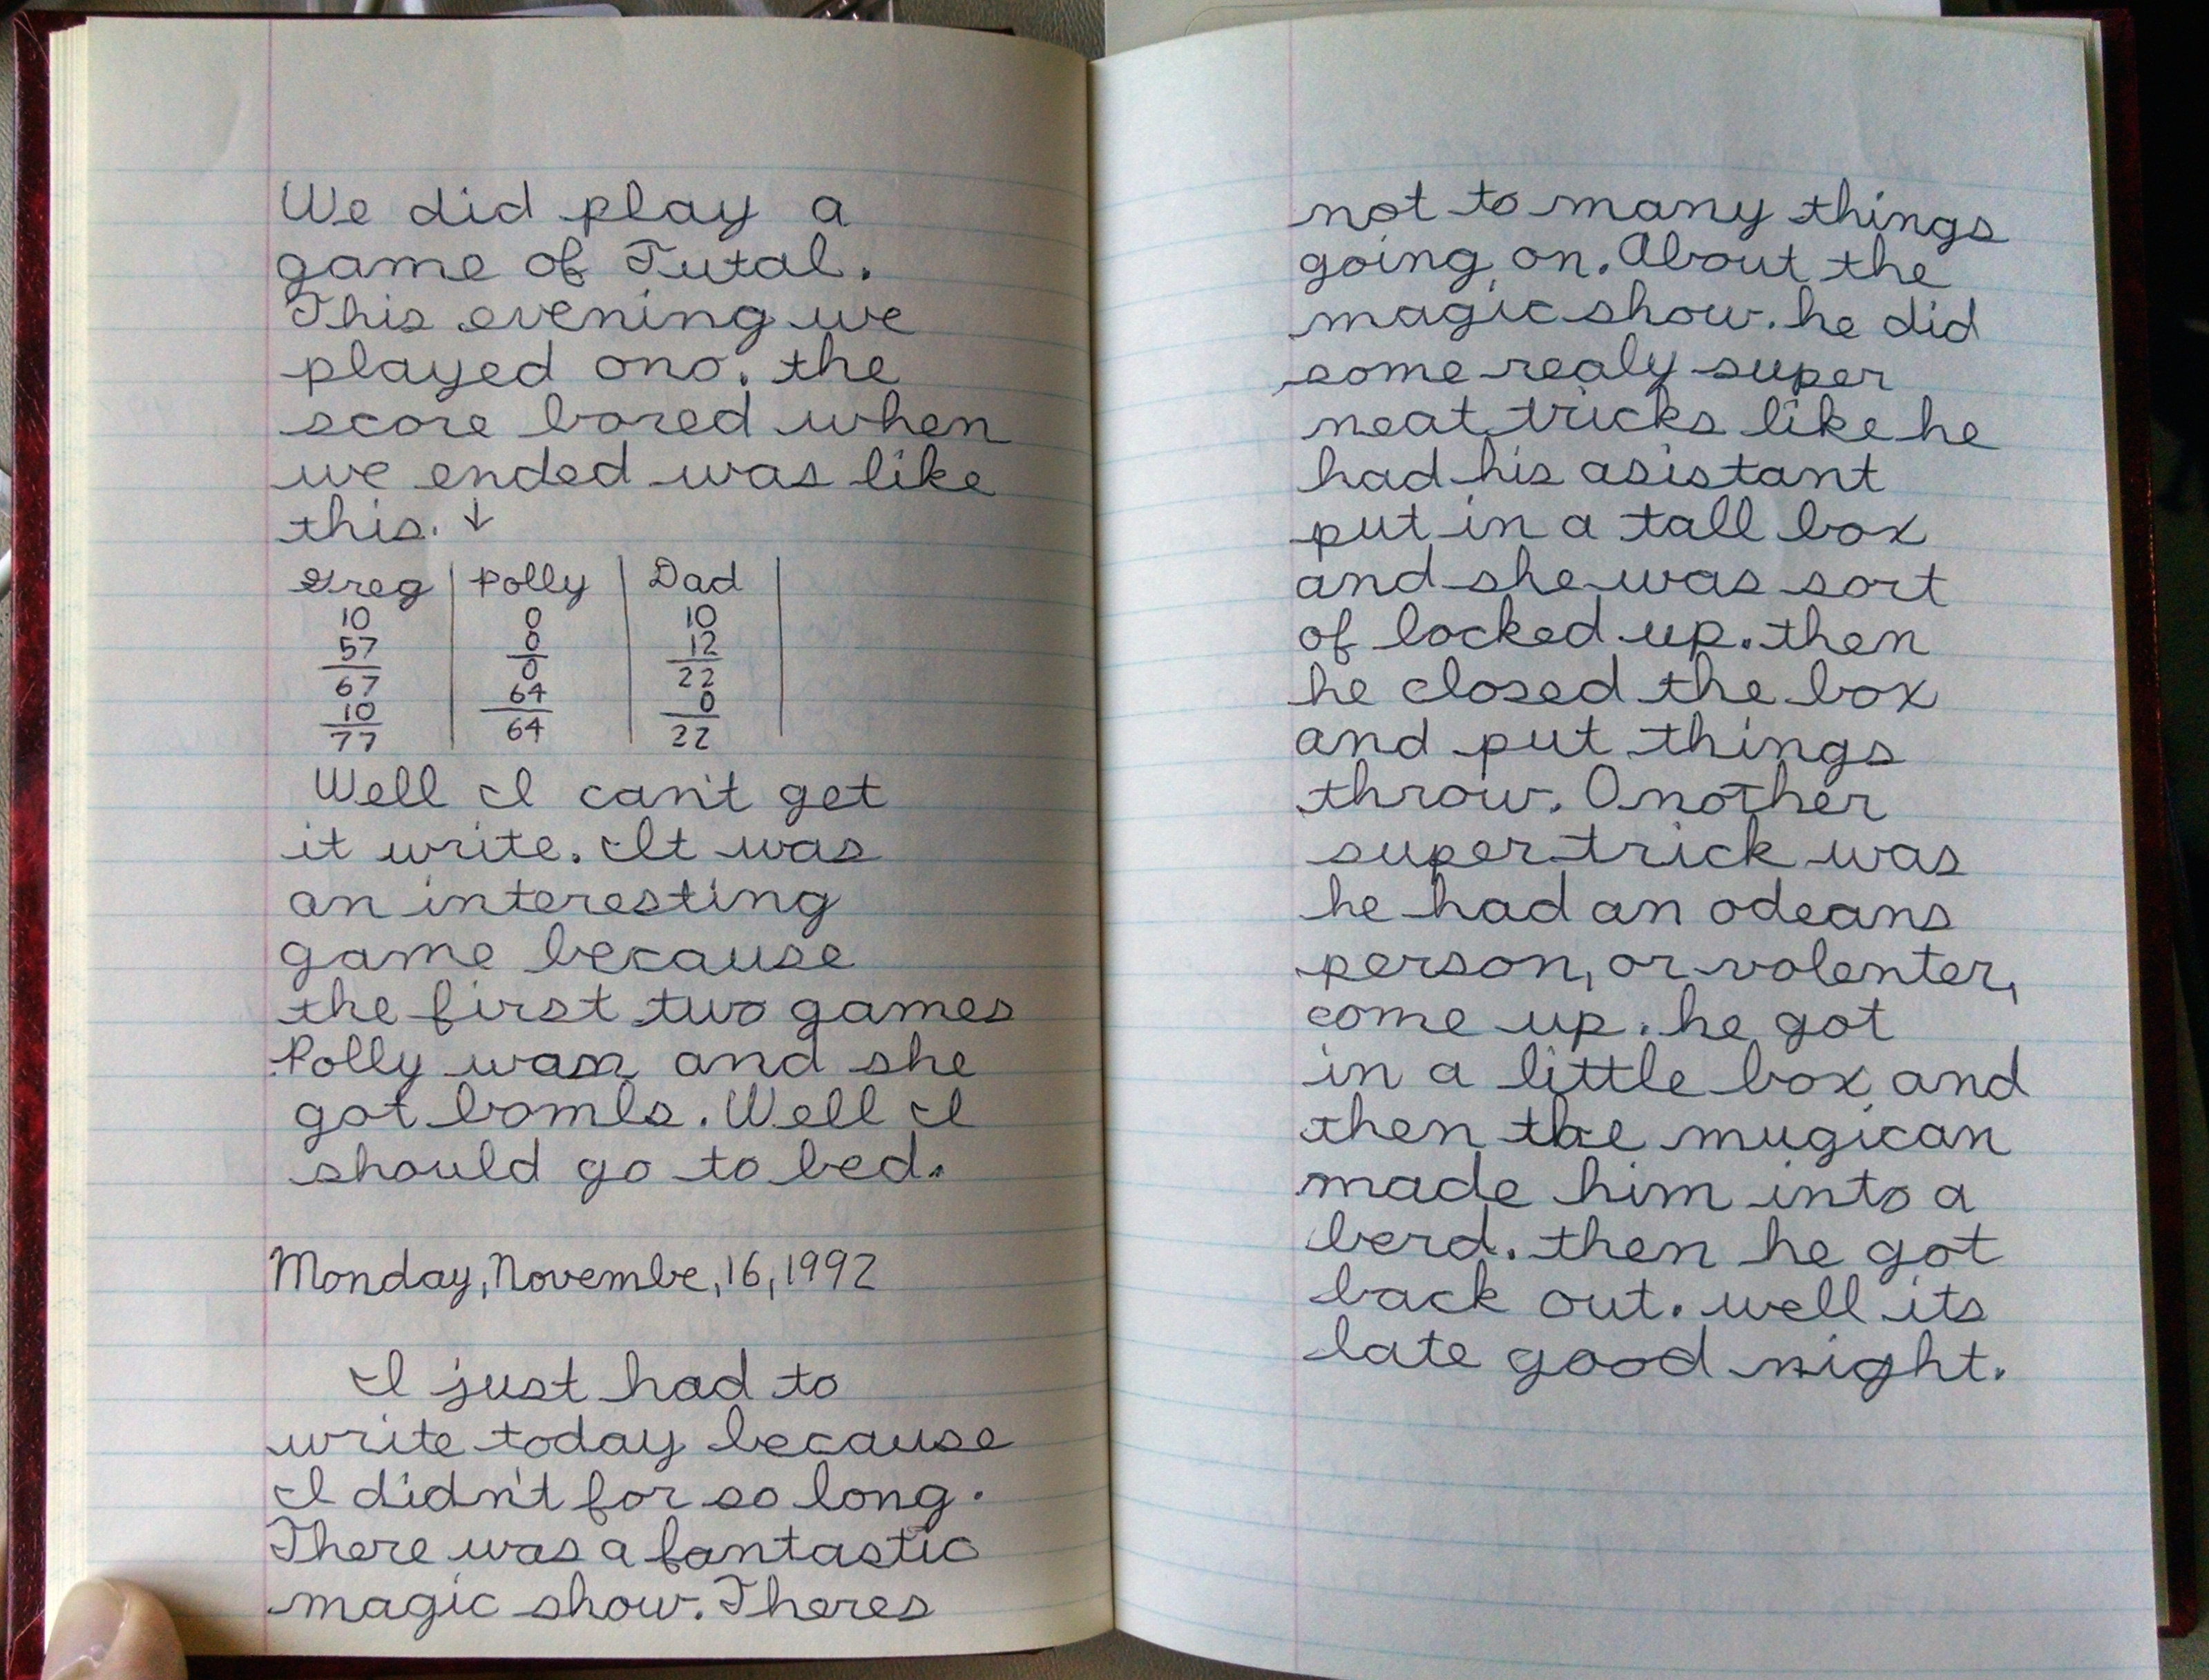 We did play a
game of Tutal.
This evening we
played ono. the
score bored when
we ended was like
this. ↓
Greg | Polly | Dad |
10 0 10
57 0 12
67 0 22
10 64 0
77 64 22
Well I can't get
it write. It was
an interesting
game because
the first two games
Polly wan and she
got bombs. Well I
should go to bed.
Monday, Novembe, 16, 1992
I just had to
write today because
I didn't for so long.
There was a fantastic
magic show. Theres
not to many things
going on. About the
magic show. he did
some realy super
neat tricks like he
had his asistant
put in a tall box
and she was sort
of locked up. then
he closed the box
and put things
throw. Another
super trick was
he had an odeans
person, or volenter,
come up. he got
in a little box and
then the mugican
made him into a
berd. then he got
back out. well its
late good night.